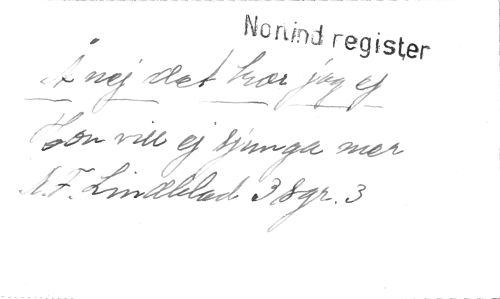 Norlind register
Å nej det tror jag ej
Hon vill ej sjunga mer
A.F. Lindblad 3 Sgr. 3